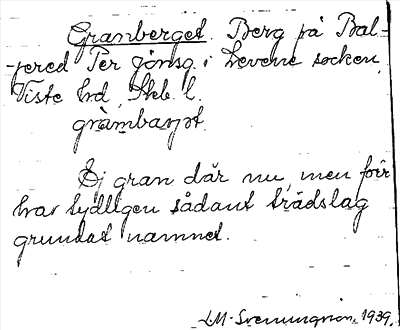 Granberget. Berg på Bal-
-jered Per Jönsg. i Levene socken,
Viste hd, Skb. l.
gràmbarjət.
Ej gran där nu, men förr
har tydligen sådant trädslag
grundat namnet.
LM. Svenungsson, 1939.